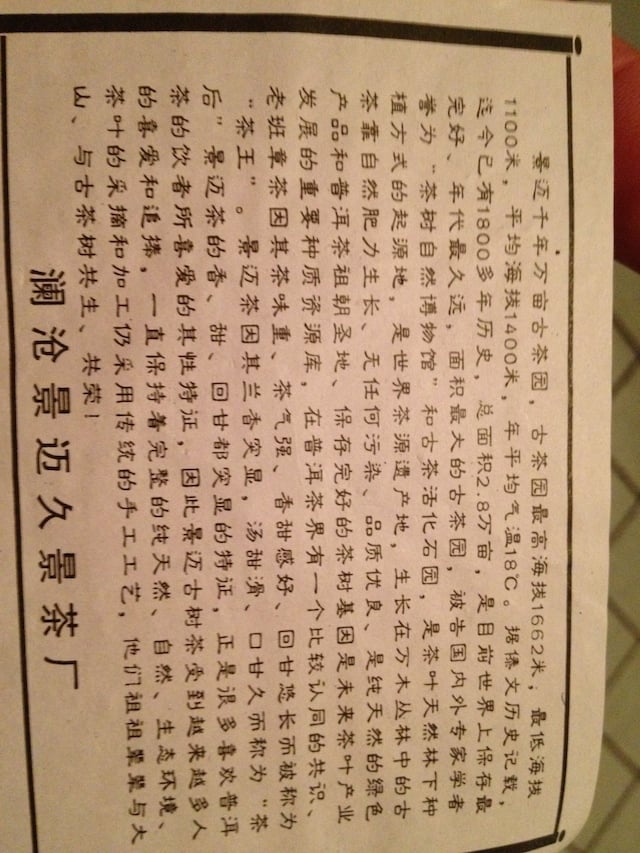 景迈千年万亩古茶园，古茶园最高海拔1662米，最低海拔
1100米，平均海拔1400米，年平均气温18℃。据傣文历史记载，
迄今已有1800多年历史，总面积2.8万亩，是目前世界上保存最
完好、年代最久远，面积最大的古茶园，被告国内外专家学者
誉为“茶树自然博物馆”和古茶活化石园，是茶叶天然林下种
植方式的起源地，是世界茶源遗产地，生长在万木丛林中的古
茶靠自然肥力生长、无任何污染、品质优良、是纯天然的绿色
产品和普洱茶祖朝圣地、保存完好的茶树基因是未来茶叶产业
发展的重要种质资源库，在普洱茶界有一个比较认同的共识、
老班章茶因其茶味重、茶气强、香甜感好、回甘悠长而被称为
“茶王”。景迈茶因其兰香突显，汤甜滑、口甘久而称为“茶
后”景迈茶的香、甜、回甘都突显的特征，正是很多喜欢普洱
茶的饮者所喜爱的其性特征，因此景迈古树茶受到越来越多人
的喜爱和追捧，一直保持着完整的纯天然、自然、生态环境、
茶叶的采摘和加工仍采用传统的手工工艺，他们祖祖辈辈与大
山、与古茶树共生、共荣！
澜沧景迈久景茶厂